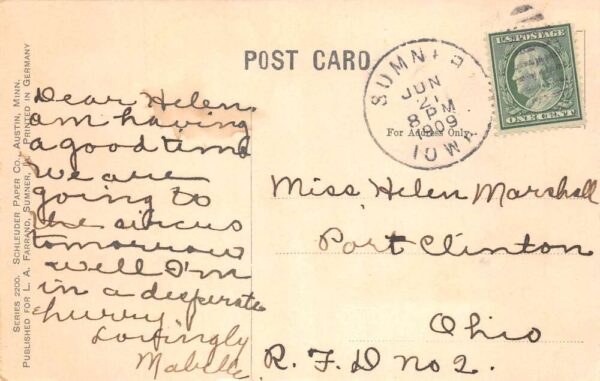 SERIES 2200. SCHLEUDER PAPER CO., AUSTIN, MINN.
PUBLISHED FOR L. A. FARRAND, SUMNER, IA. PRINTED IN GERMANY
POST CARD.
SUMNER
JUN
21
8 PM
1909
IOWA
U.S. POSTAGE
ONE CENT
For Address Only.
Dear Helen,
am having
a good time
we are
going to
the circus
tomorrow
well I'm
in a desperate
hurry
Lovingly
Mabelle
Miss, Helen Marshall
Port Clinton
Ohio
R. F. D No 2.